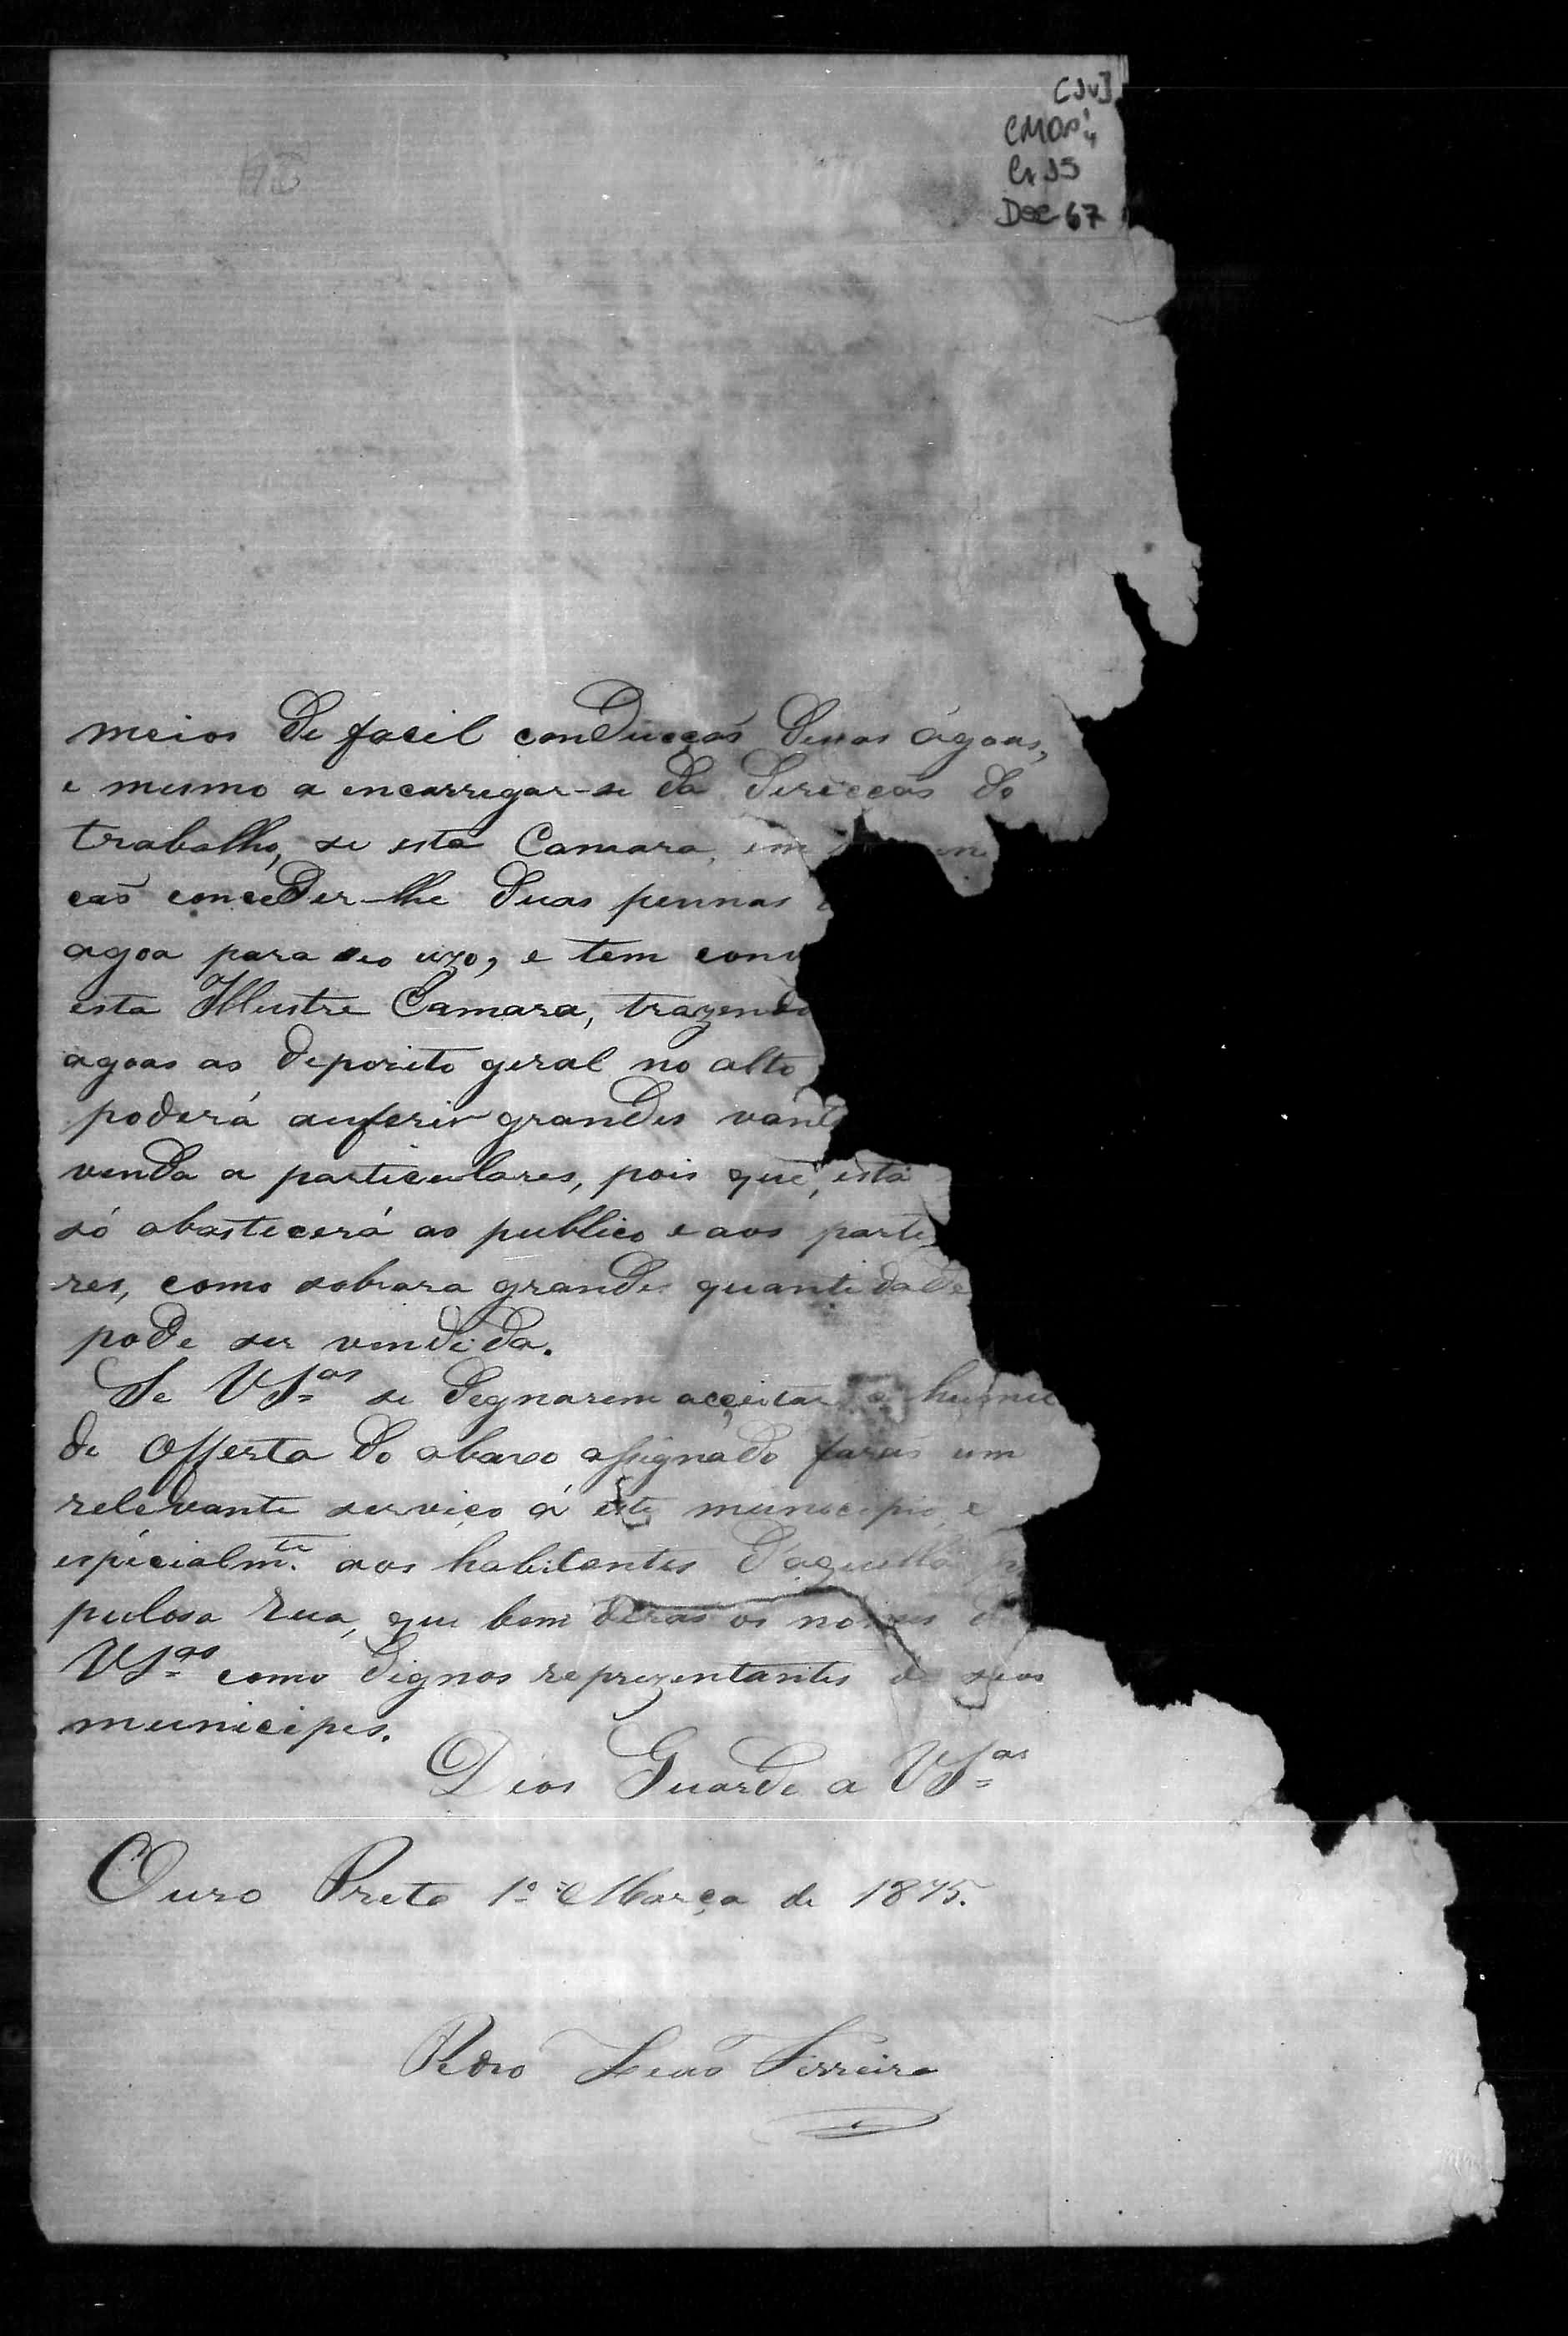 [Jv]
CMOP
Cx 95
Doc 67
meios de facil conducção dessas ágoas,
e mesmo a encarregar-se da direcção do
trabalho, se esta Camara, em
cão conceder-lhe duas pennas
agoa para seo uzo, e tem conv
esta Illustre Camara, trazendo
agoas ao deposito geral no alto
poderá auferir grandes vant
venda a particulares, pois que, esta
só abastecerá ao publico e aos parti
res, como sobrara grande quantidade
pode ser vendida.
Se VSas se degnarem acceitar a humil
de offerta do abaxo assignado farão um
relevante serviço á este municipio, e
espicialmte aos habitantes d'aquella
pulosa rua, que bem dirão os nomes de
VSas como dignos reprezentantes de seos
municipes.
Deos Guarde a VSas
Ouro Preto 1º Março de 1875.
Pedro Leão Ferreira